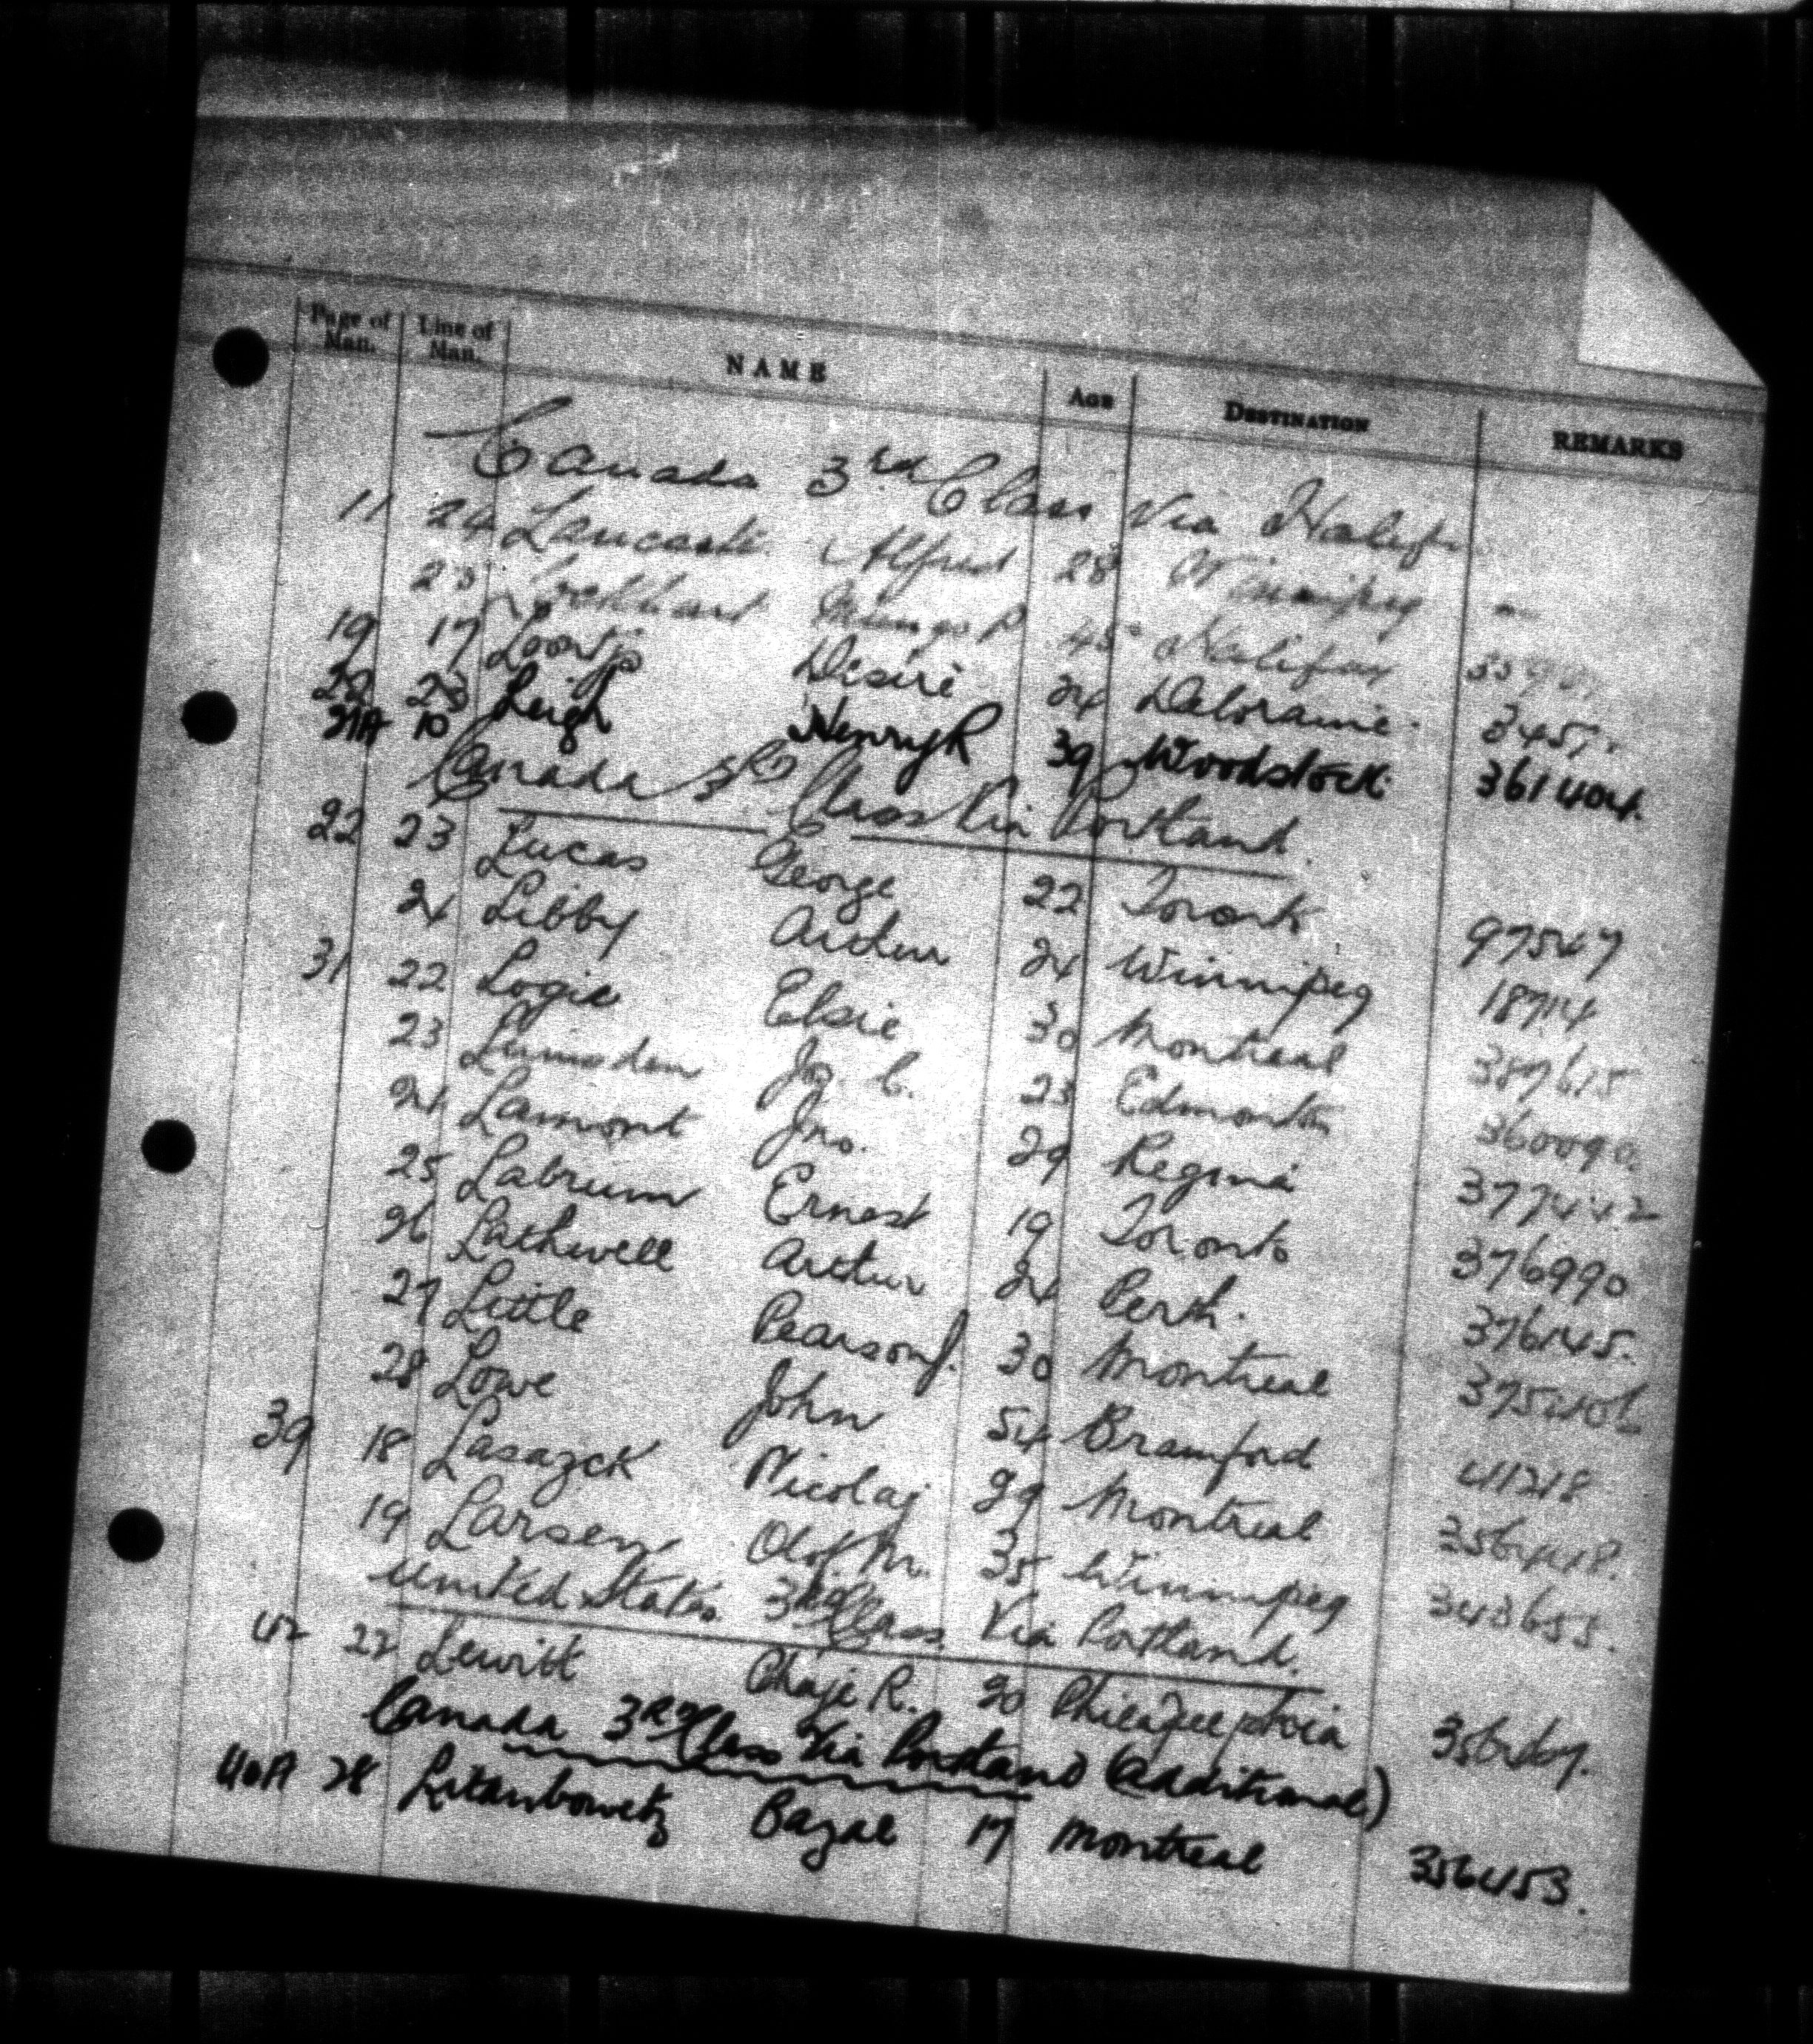 Page of Man. Line of Man. NAME AGE DESTINATION REMARKS
Canada 3rd Class Via Halifax
11 24 Lancaster Alfred 28 Winnipeg
25 Lockhart Mungo P 45 Halifax
19 17 Lootjs Desire 24 Deloraine 3457
22 23
21A 10 Leigh Henry R 39 Woodstock 361404.
Canada 3RD Class Via Portland.
22 23 Lucas George 22 Toronto 97547
24 Libby Arthur 24 Winnipeg 18714
31 22 Logie Elsie 30 Montreal 387615
23 Lumsden Jas. C. 23 Edmonton 360090.
24 Lamont Jno. 29 Regina 377442
25 Labrum Ernest 19 Toronto 376990
26 Lathwell Arthur 24 Perth. 376145.
27 Little Pearson J. 30 Montreal 375406
28 Lowe John 54 Bramford 41218
39 18 Lasazck Nicolaj 29 Montreal 356448.
19 Larsen Olof M. 35 Winnipeg 343655.
United States. 3RD Class Via Portland.
42 22 Lewitt Chaje R. 20
Canada 3RD Class Via Portland (Additional)
40A 28 Litanbowetz Bazal 17 Montreal 356453.